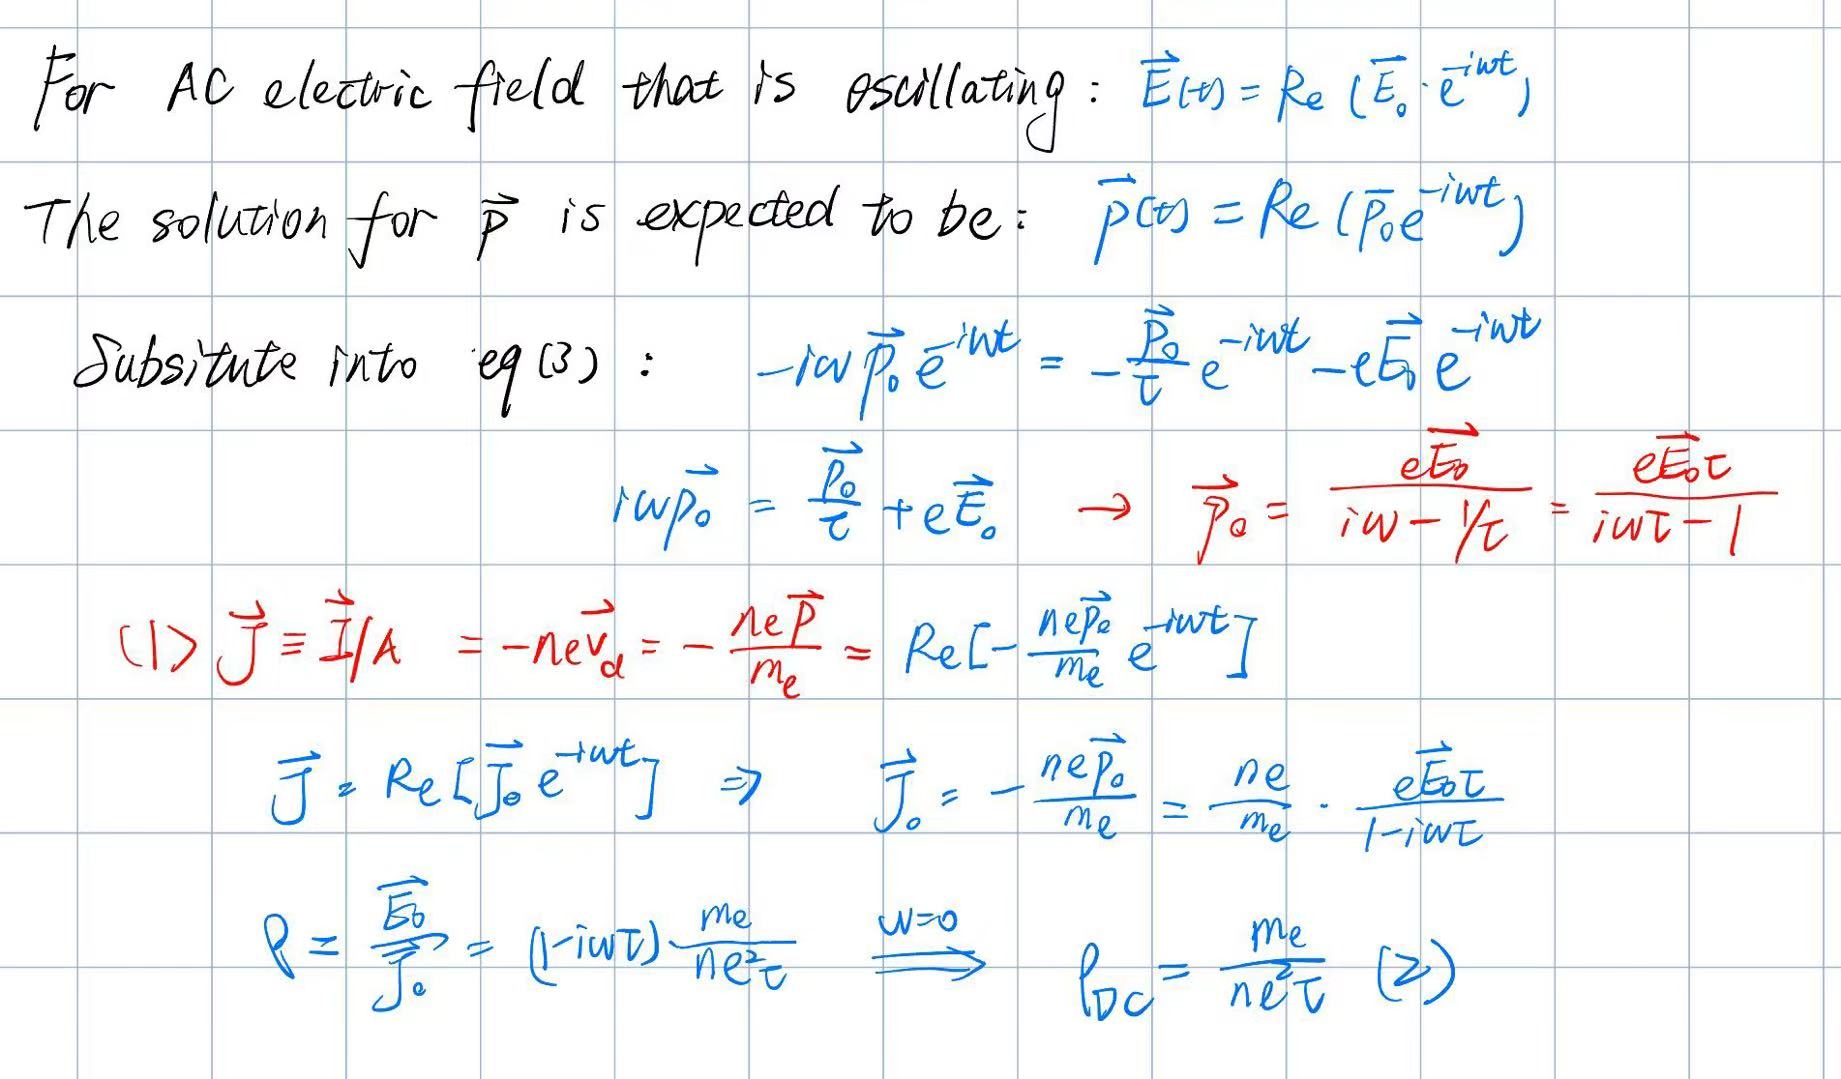 For AC electric field that is oscillating: $\vec{E}(t) = Re(\vec{E}_0 \cdot e^{-i\omega t})$
The solution for $\vec{p}$ is expected to be: $\vec{p}(t) = Re(\vec{p}_0 e^{-i\omega t})$
Subsitute into eq(3): $-i\omega \vec{p}_0 e^{-i\omega t} = -\frac{\vec{p}_0}{\tau} e^{-i\omega t} - e\vec{E}_0 e^{-i\omega t}$
$i\omega \vec{p}_0 = \frac{\vec{p}_0}{\tau} + e\vec{E}_0 \rightarrow \vec{p}_0 = \frac{e\vec{E}_0}{i\omega - 1/\tau} = \frac{e\vec{E}_0 \tau}{i\omega\tau - 1}$
(1) $\vec{J} \equiv \vec{I}/A = -ne\vec{v}_d = -\frac{ne\vec{p}}{m_e} = Re[-\frac{ne\vec{p}_0}{m_e} e^{-i\omega t}]$
$\vec{J} = Re[\vec{J}_0 e^{-i\omega t}] \Rightarrow \vec{J}_0 = -\frac{ne\vec{p}_0}{m_e} = \frac{ne}{m_e} \cdot \frac{e\vec{E}_0 \tau}{1 - i\omega\tau}$
$\rho = \frac{\vec{E}_0}{\vec{J}_0} = (1 - i\omega\tau) \cdot \frac{m_e}{ne^2\tau} \xRightarrow{\omega = 0} \rho_{DC} = \frac{m_e}{ne^2\tau}$ (2)